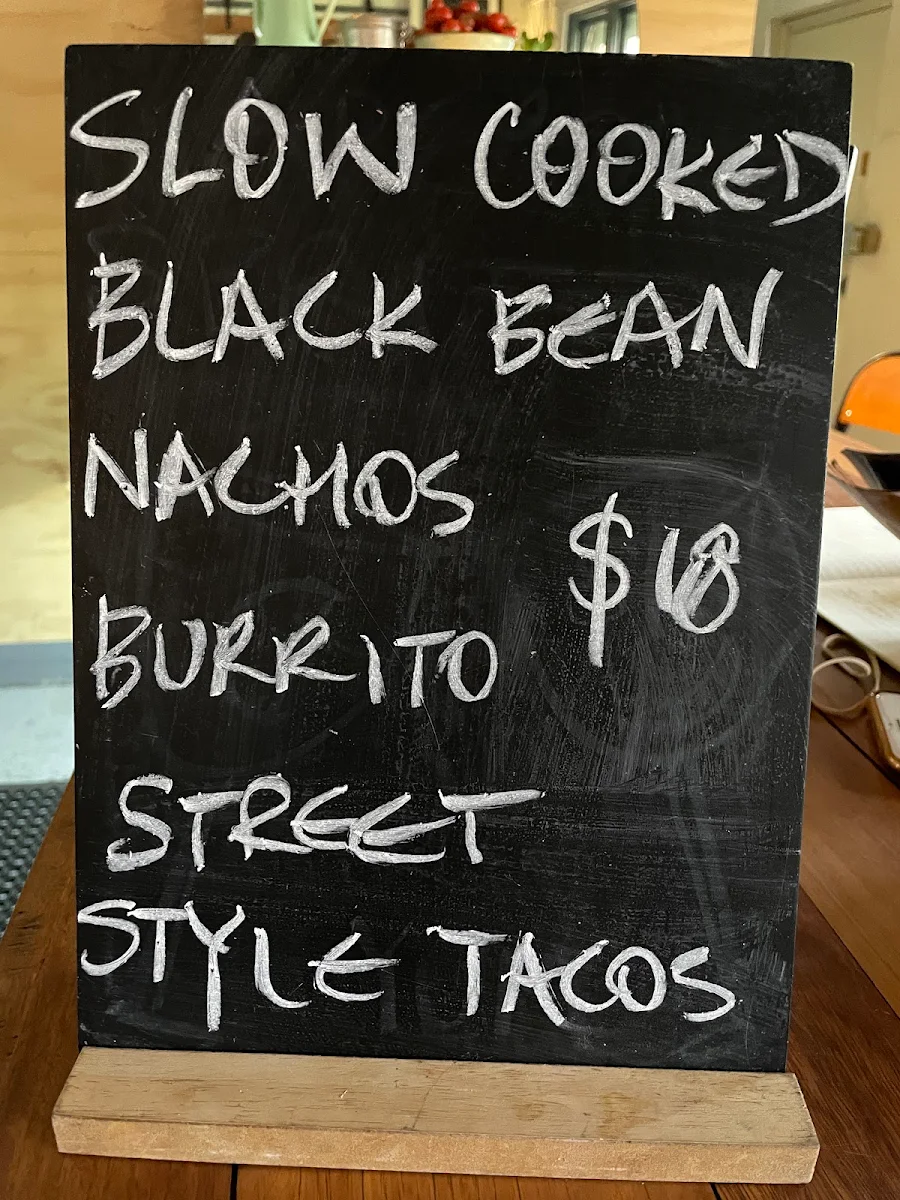 SLOW COOKED
BLACK BEAN
NACHOS
$18
BURRITO
STREET
STYLE TACOS